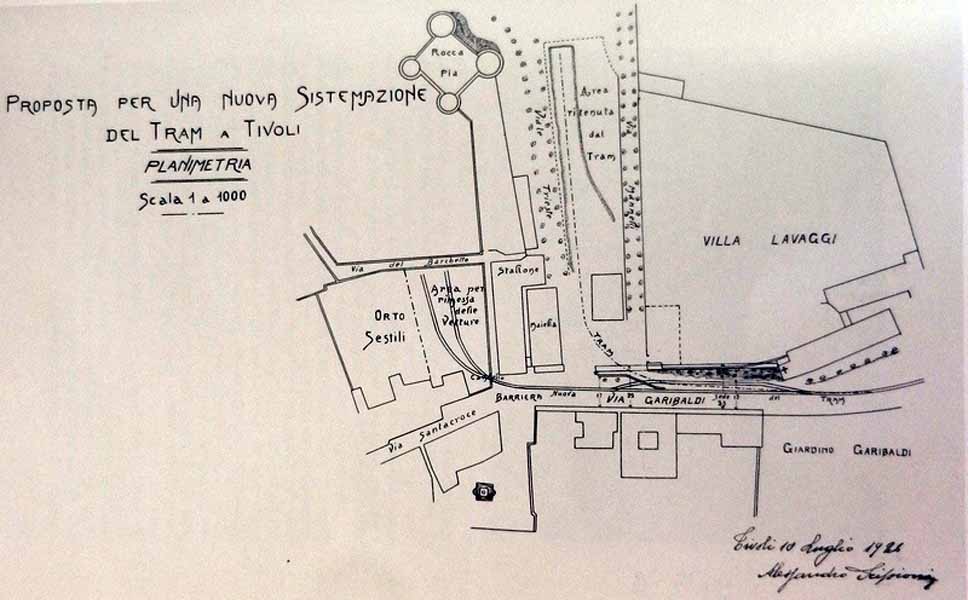 PROPOSTA PER UNA NUOVA SISTEMAZIONE
DEL TRAM A TIVOLI
PLANIMETRIA
Scala 1 a 1000
Rocca
Pia
Viale
Trieste
Area
ritenuta
dal
Tram
Via
VILLA LAVAGGI
Via del Barchetto
Stallone
Area per
rimessa
delle
Vetture
ORTO
Sestili
TRAM
BARRIERA Nuova VIA GARIBALDI Sede del TRAM
Via Santacroce
GIARDINO GARIBALDI
Tivoli 10 Luglio 192
Alessandro